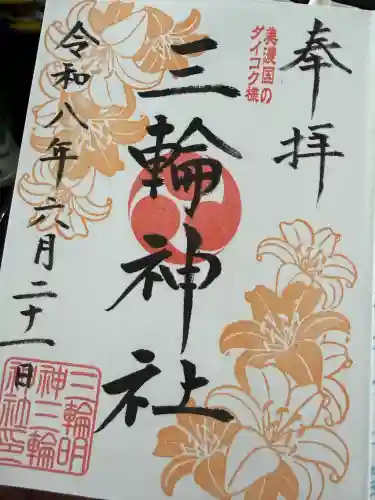 奉拝
美濃国の
ダイコク様
三輪神社
令和八年六月二十一日
三輪明
神三輪
神社印